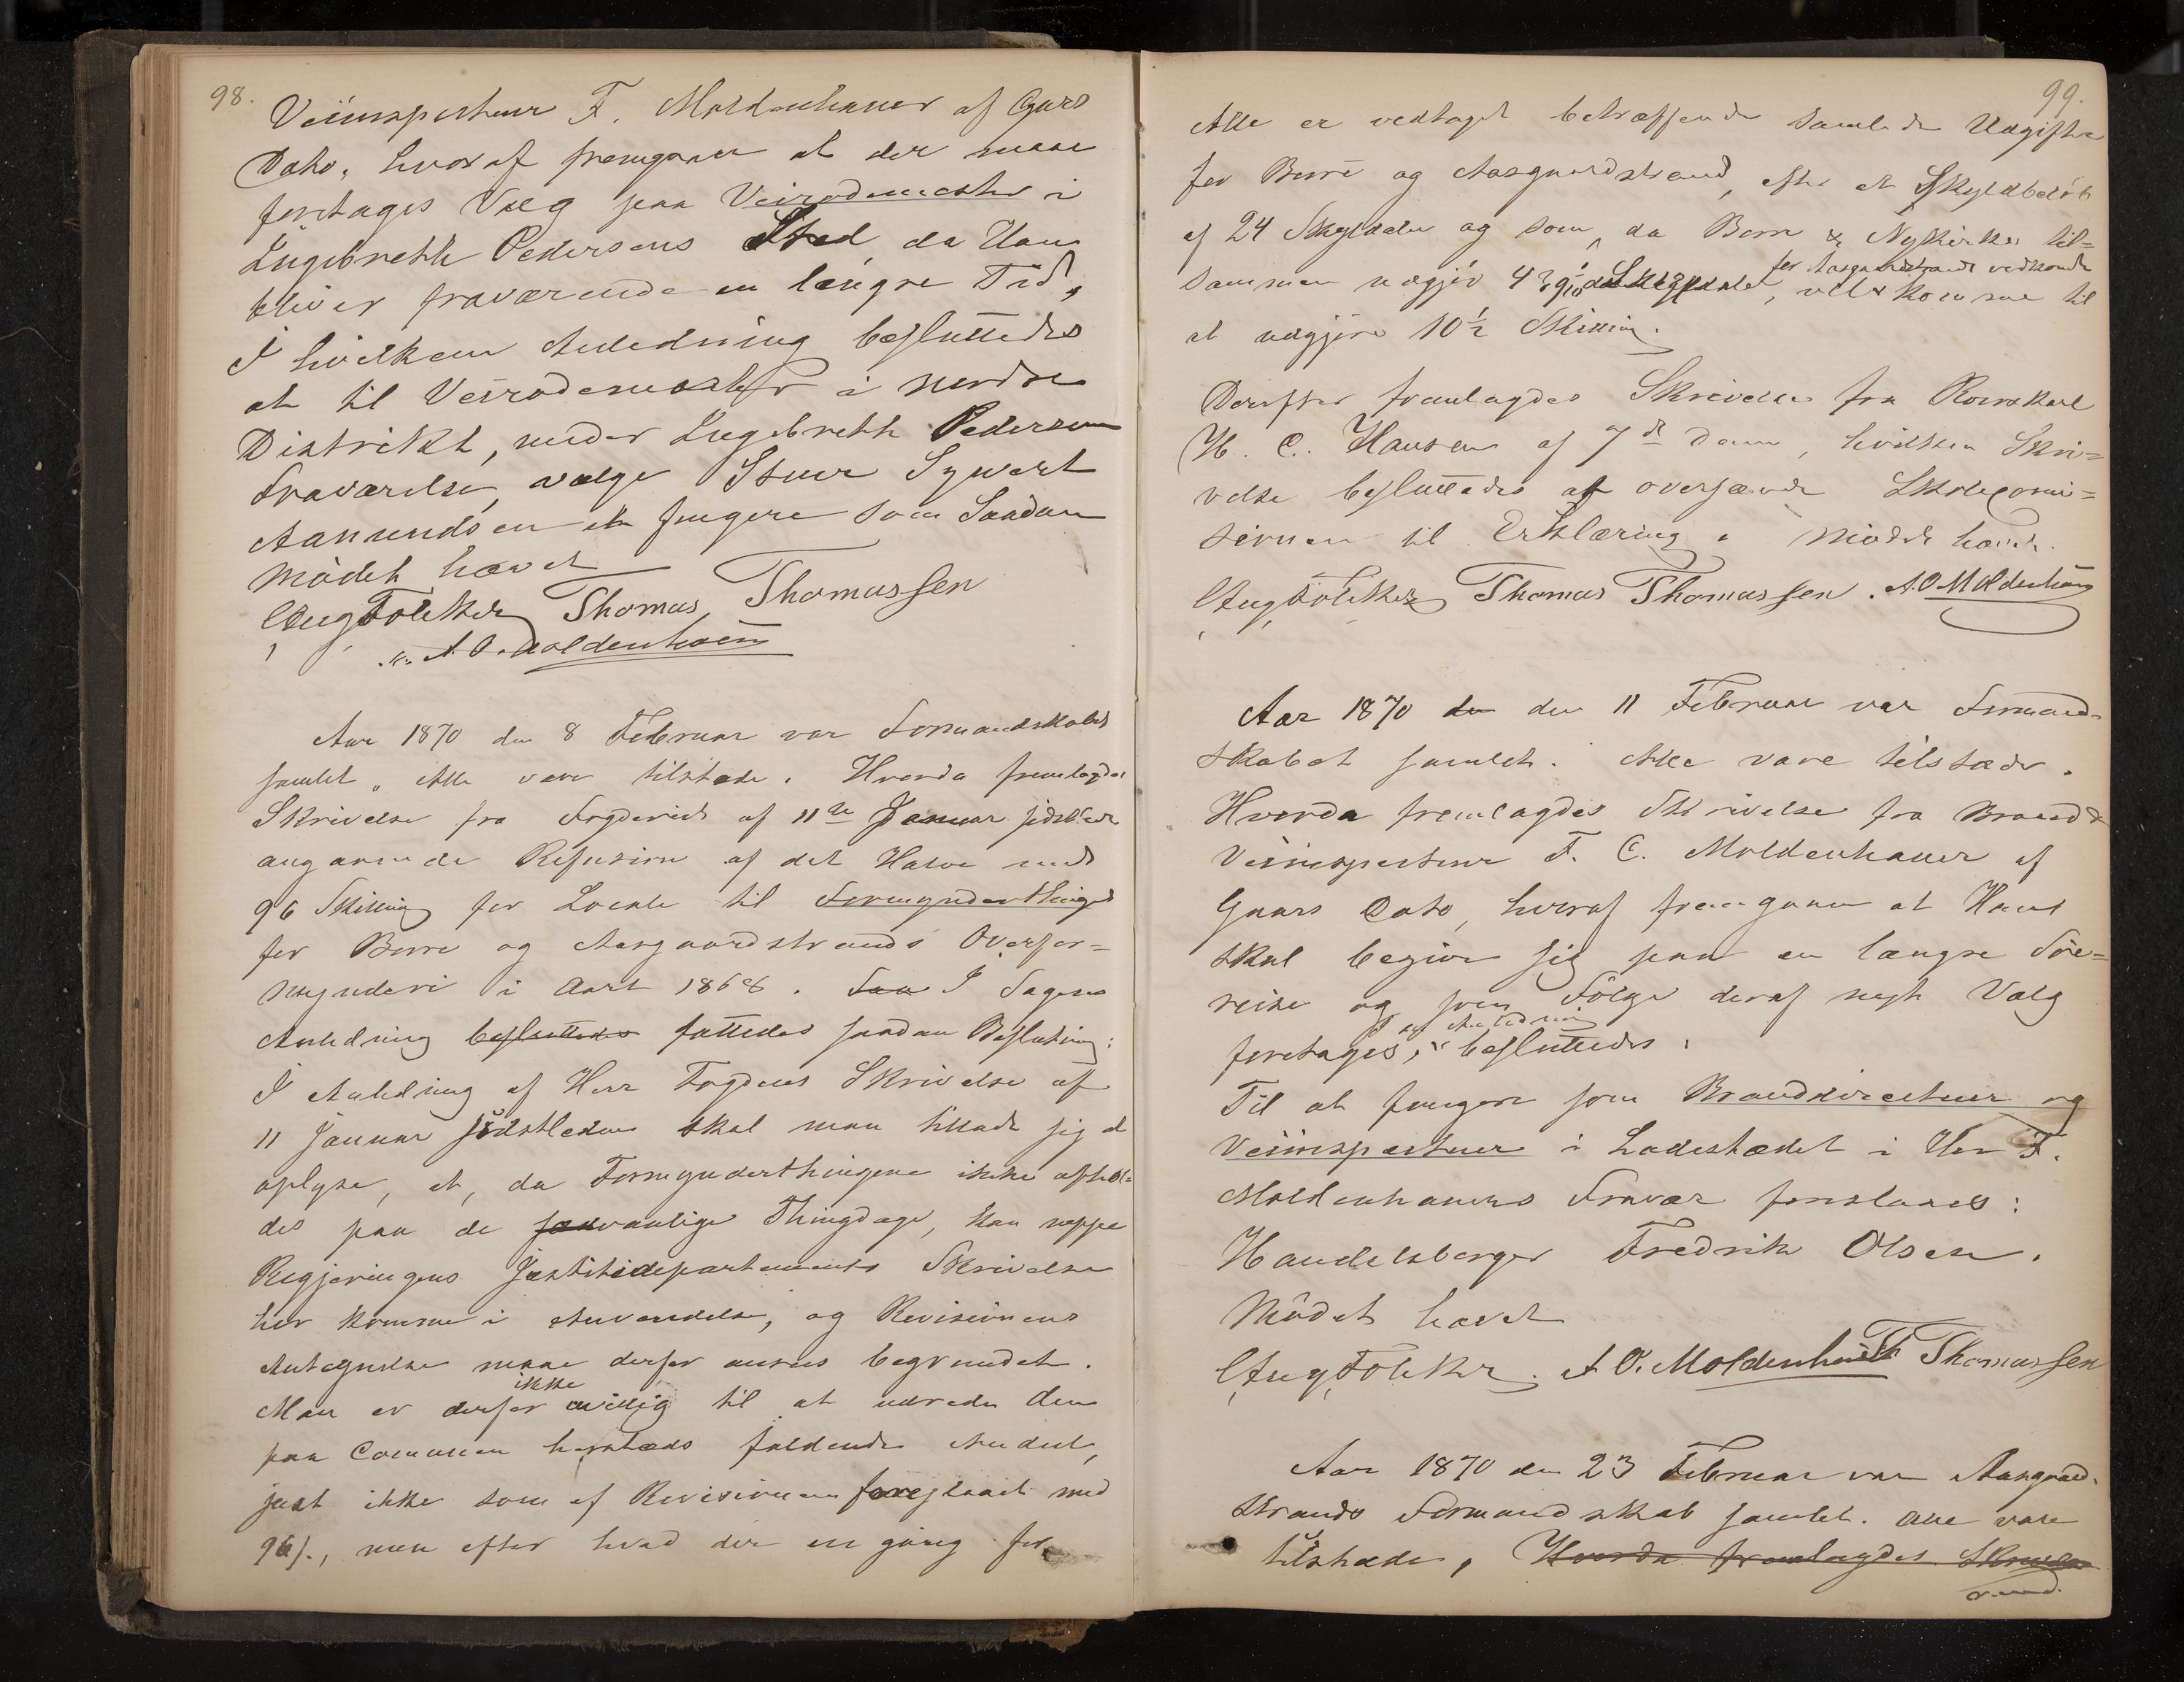 98.
Veiinspecteur F. Moldenhauer af Gaars
Dato, hvoraf fremgaaer at der maae
foretages Valg paa Veirodemester i
Engebreth Pedersens Sted, da Han
bliver fraværende en længre Tid,
I hvilken Anledning besluttedes
at til Veirodemester i nordre
Distrikt, under Engebreth Pedersens
Fraværelse, vælge Stuer Syvert
Aanundsen at fungere som Saadan
Mødet hævet
Aug Føleker Thomas Thomassen
A. O. Moldenhauer
Aar 1870 den 8 Februar var Formandskabet
samlet, Alle vare tilstede. Hvorda fremlagdes
Skrivelse fra Fogderiet af 11te Januar sidstleden
angaaende Refusion af det Halve med
96 Skilling for Locale til Formynderthinget
for Borre og Aasgaardstrands Overfor=
mynderi i Aaret 1868. I Sagens
Anledning besluttedes fattedes saadan Beslutning:
I Anledning af Herr Fogdens Skrivelse af
11 Januar sidstleden skal man tillade sig at
oplyse, at, da Formynderthingene ikke afhol=
des paa de sædvanlige Thingdage, kan neppe
Regjeringens Justitsdepartements Skrivelse
her komme i Anvendelse, og Revisionens
Antegnelse maae derfor ansees begrundet.
ikke
Man er derfor uvillig til at udrede den
paa Communen herstæds faldende Andeel,
just ikke som af Revisionen foreslaaet med
96 s., men efter hvad der en gang for
99.
Alle er vedtaget betræffende samlede Udgifter
for Borre og Aasgaardstrand, efter et Skyldbeløb
af 24 Skylddaler og som, da Borre & Nykirke til=
for Aasgaardstrands vedkommende
sammen udgjør, vil komme til
at udgjøre 10½ Skilling.
Derefter fremlagdes Skrivelse fra
H. C. Hansen af 7de dennes, hvilken Skri=
velse besluttedes at oversænde Skolecomi=
sionen til Erklæring. Mødet hævet.
Aug Føleker Thomas Thomassen. A. O. Moldenhauer
Aar 1870 den den 11 Februar var Formand=
skabet samlet. Alle vare tilstæde.
Hvorda fremlagdes Skrivelse fra Brand &
Veiinspecteur F. C. Moldenhauer af
Gaars Dato, hvoraf fremgaaer at Han
skal begive sig paa en længre Søe=
reise og som Følge deraf nyt Valg
I den Anledning
foretages, besluttedes:
Til at fungere som Branddirecteur og
Veiinspecteur i Ladestædet i Herr F.
Moldenhauers Fravær foreslaaes:
Handelsborger Fredrik Olsen.
Mødet hævet
Aug Føleker. A. O. Moldenhauer Th Thomassen
Aar 1870 den 23 Februar var Aasgaard=
strands Formandskab samlet. Alle vare
tilstæde, Hvorda fremlagdes Skrivelse